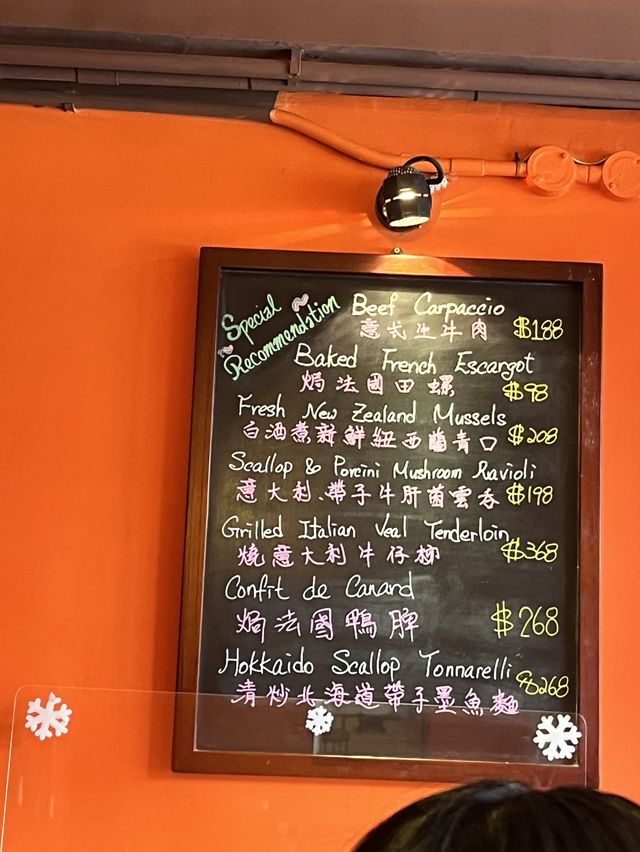 Special
Recommendation
Beef Carpaccio
意式生牛肉 $188
Baked French Escargot
焗法國田螺 $98
Fresh New Zealand Mussels
白酒煮新鮮紐西蘭青口 $208
Scallop & Porcini Mushroom Ravioli
意大利、帶子牛肝菌雲吞 $198
Grilled Italian Veal Tenderloin
燒意大利牛仔柳 $368
Confit de Canard
焗法國鴨脾 $268
Hokkaido Scallop Tonnarelli
清炒北海道帶子墨魚麵 $268